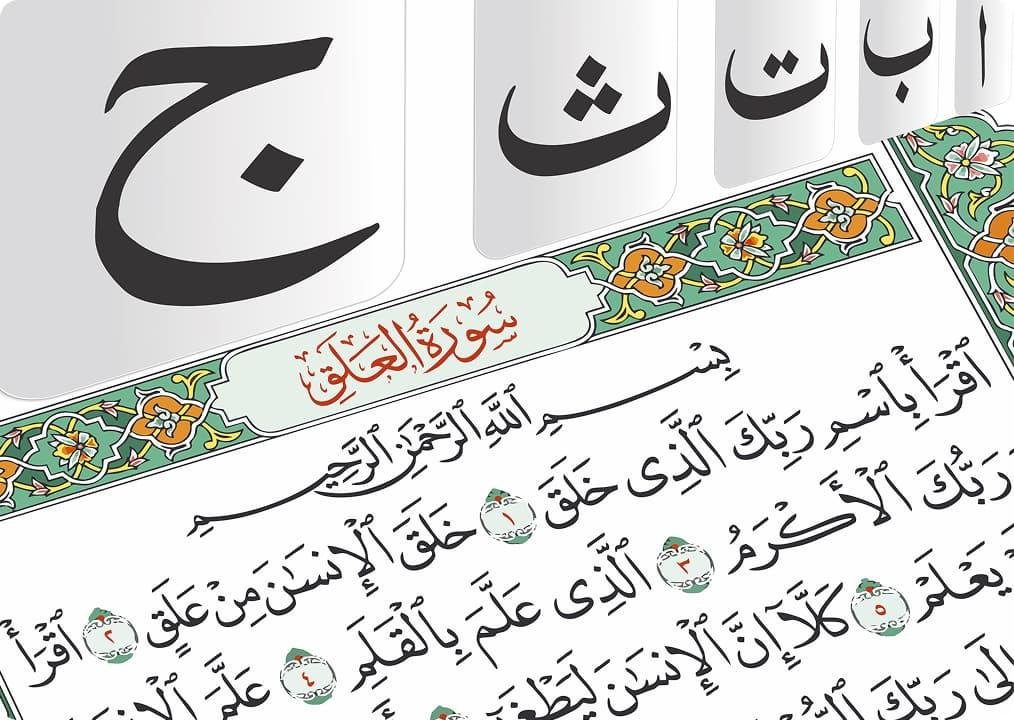 ا ب ت ث ج
سُورَةُ الْعَلَقِ
بِسْمِ ٱللَّهِ ٱلرَّحْمَٰنِ ٱلرَّحِيمِ
ٱقْرَأْ بِٱسْمِ رَبِّكَ ٱلَّذِى خَلَقَ ١ خَلَقَ ٱلْإِنسَٰنَ مِنْ عَلَقٍ ٢ ٱقْرَأْ
وَرَبُّكَ ٱلْأَكْرَمُ ٣ ٱلَّذِى عَلَّمَ بِٱلْقَلَمِ ٤ عَلَّمَ ٱلْإِنسَٰنَ
يَعْلَمْ ٥ كَلَّآ إِنَّ ٱلْإِنسَٰنَ لَيَطْغَىٰٓ
إِلَىٰ رَبِّكَ